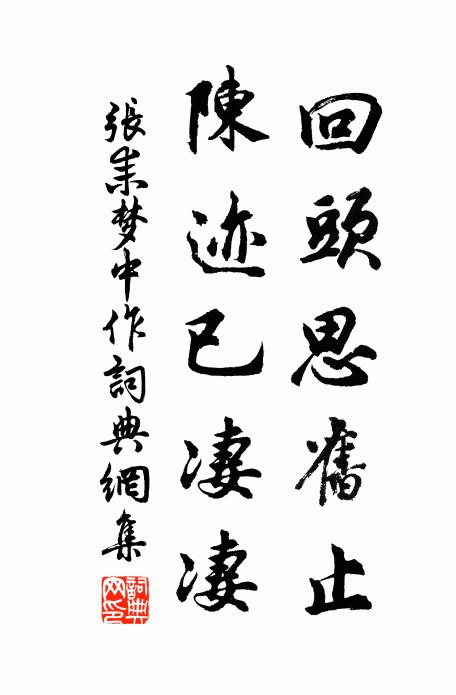 回頭思舊止
陳迹已凄凄
張耒梦中作詞典網集
詞典网印